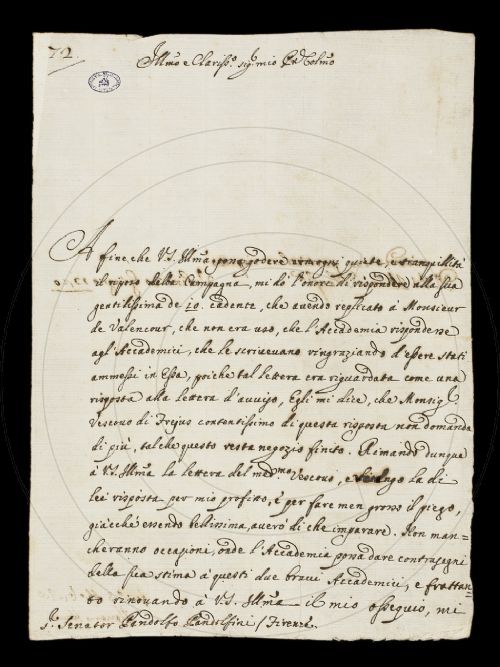 72.
Illmo e Clarisso sigr. mio
A fine che V.S. Illma possa godere con ogni quiete, e tranquillità
il riposo della Campagna, mi dò l'onore di rispondere alla sua
gentilissima de 10. cadente, che avendo replicato à Monsieur
de Valencour, che non era uso, che l'Accademia rispondesse
agl'Accademici, che le scrivevano ringraziando d'essere stati
ammessi in Essa, poiche tal lettera era riguardata come una
risposta alla lettera d'avviso, Egli mi dice, che Monsigr.
Vescovo di Frejus contentissimo di questa risposta non domanda
di più, talche questo resta negozio finito. Rimando dunque
à V.S. Illma la lettera del medmo Vescovo, e la di
lei risposta per mio profitto, e per fare men grosso il piego,
già che essendo bellissima, averò di che imparare. Non man=
cheranno occasioni, onde l'Accademia possa dare contrasegni
della sua stima à questi due bravi Accademici, e frattan=
to rinovando à V.S. Illma il mio ossequio, mi
Sr. Senator Pandolfo Pandolfini / Firenze